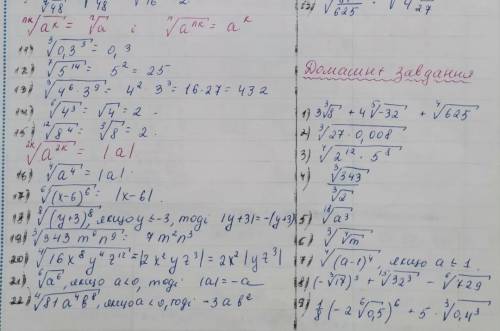 ⁴√48 √48 √16 2
ⁿᵏ√aᵏ = ⁿ√a i ⁿ√aⁿᵏ = aᵏ
11) ³√0,3³ = 0,3
12) ⁷√5¹⁴ = 5² = 25
13) ³√4⁶·3⁹ = 4² 3³ = 16·27 = 432
14) ⁶√4³ = √4 = 2.
15) ¹²√8⁴ = ³√8 = 2.
²ᵏ√a²ᵏ = |a|
16) ⁴√a⁴ = |a|.
17) ⁶√(x-b)⁶ = |x-b|.
18) ⁸√(y+3)⁸, якщо y ≤ -3, тоді |y+3| = -(y+3)
19) ³√343 m⁶n⁹ = 7 m²n³
20) ⁴√16x⁸y⁴z¹² = |2x²yz³| = 2x²|yz³|
21) ⁶√a⁶, якщо a<0, тоді |a| = -a
22) ⁴√81a⁴b⁸, якщо a<0, тоді -3ab²
625 ⁴√27
Домашнє завдання
1) 3³√8 + 4⁵√-32 + ⁴√625
2) ³√27·0,008
3) ⁴√2¹²·5⁸
4) ³√343
³√2
5) ¹⁸√a³
6) ³√⁴√m
7) ⁴√(a-1)⁴, якщо a ≤ 1.
8) (-³√17)³ + ¹⁵√32³ - ⁶√729
9) 1/8(-2⁶√0,5)⁶ + 5·³√0,4³